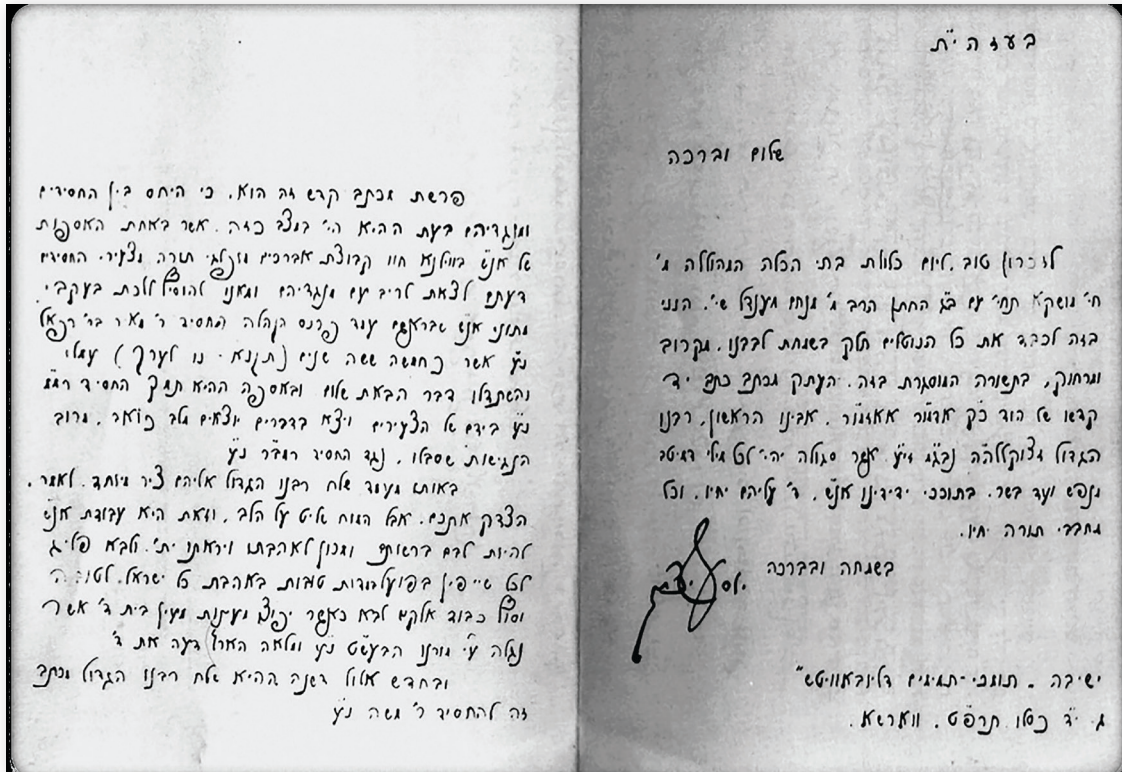 בעזה״ת
שלום וברכה
לזכרון טוב. ליום כלולת בתי הכלה המהוללה מ׳
חי׳ מושקא תחי׳ עם ב״ג החתן הרב מ׳ מנחם מענדל שי׳. הנני
בזה לכבד את כל הנוטלים חלק בשמחת לבבנו. מקרוב
ומרחוק. בתשורה המוסגרת בזה. העתק מכתב כתב יד
קדשו של הוד כ״ק אדמו״ר אאזמו״ר. אבינו הראשון. רבנו
הגדול מצוקללה״ה נבג״מ זי״ע. אשר סגולה יהי׳ לכל מילי דמיטב
מנפש ועד בשר. בתוככי ידידינו אנ״ש. ד׳ עליהם יחיו. וכל
מחבבי תורה יחיו.
בשמחה ובברכה
ישיבה - תומכי-תמימים דליובאוויטש״
ג. י״ד כסלו תרפ״ט. ווארשא.
פרשת מכתב קדש זה הוא. כי היחס בין החסידים
ומנגדיהם בעת ההיא הי׳ במצב כזה. אשר באחת האספות
של אנ״ש בווילנא חוו קבוצת אברכים מופלגי תורה מצעירי החסידים
דעתם לצאת לריב עם מנגדיהם ומאנו להוסיף ללכת בעקבי
מתוני אנ״ש שבראשם עמד פרנס הקהלה החסיד ר׳ מאיר בר׳ רפאל
נ״ע אשר כחמשה ששה שנים (תקנא - נו לערך) עמלו
והשתדלו דבר הבאת שלום ובאספה ההיא תמך החסיד רמ״מ
נ״ע בידם של הצעירים ויצא בדברים יוצאים מלב כואב. מרוב
הנגישות שסבלו. נגד החסיד רמב״ר נ״ע
באותו מעמד שלח רבנו הגדול אליהם ציר מיוחד. לאמר.
הצדק אתכם. אבל המוח שליט על הלב. וזאת היא עבודת אנ״ש
להיות לבם ברשותם ומכון לאהבתו ויראתו ית׳. ולבא פליג
לכל שייפין בפועל בדות טובות באהבת כל ישראל. לטובה
וסוף כבוד אלקים לבא כאשר יפוצו מעינות מעין בית ד׳ אשר
נגלה ע״י מורנו הבעש״ט נ״ע ומלאה הארץ דעה את ד׳
ובחדש אלול דשנה ההיא שלח רבנו הגדול מכתב
זה להחסיד ר׳ משה נ״ע